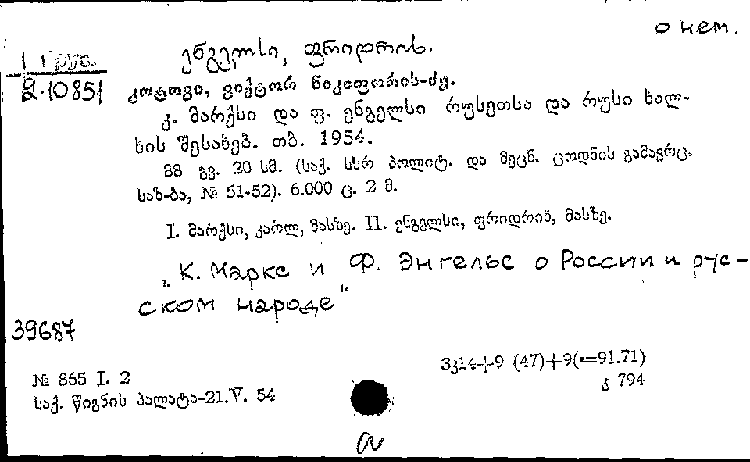 о нем.
ენგელსი, ფრიდრიხ.
2.10851
კოტოვი, ვიქტორ ნიკიფორის-ძე.
კ. მარქსი და ფ. ენგელსი რუსეთსა და რუსი ხალ-
ხის შესახებ. თბ. 1954.
88 გვ. 20 სმ. (საქ. სსრ პოლიტ. და მეცნ. ცოდნის გამავრც.
საზ-ბა, № 51-52). 6.000 ც. 2 მ.
I. მარქსი, კარლ, მასზე. II. ენგელსი, ფრიდრიხ, მასზე.
„К. Маркс и Ф. Энгельс о России и рус-
ском народе"
39687
3კ24+9 (47)+9(.=91.71)
№ 865 I. 2
კ 794
საქ. წიგნის პალატა-21.V. 54